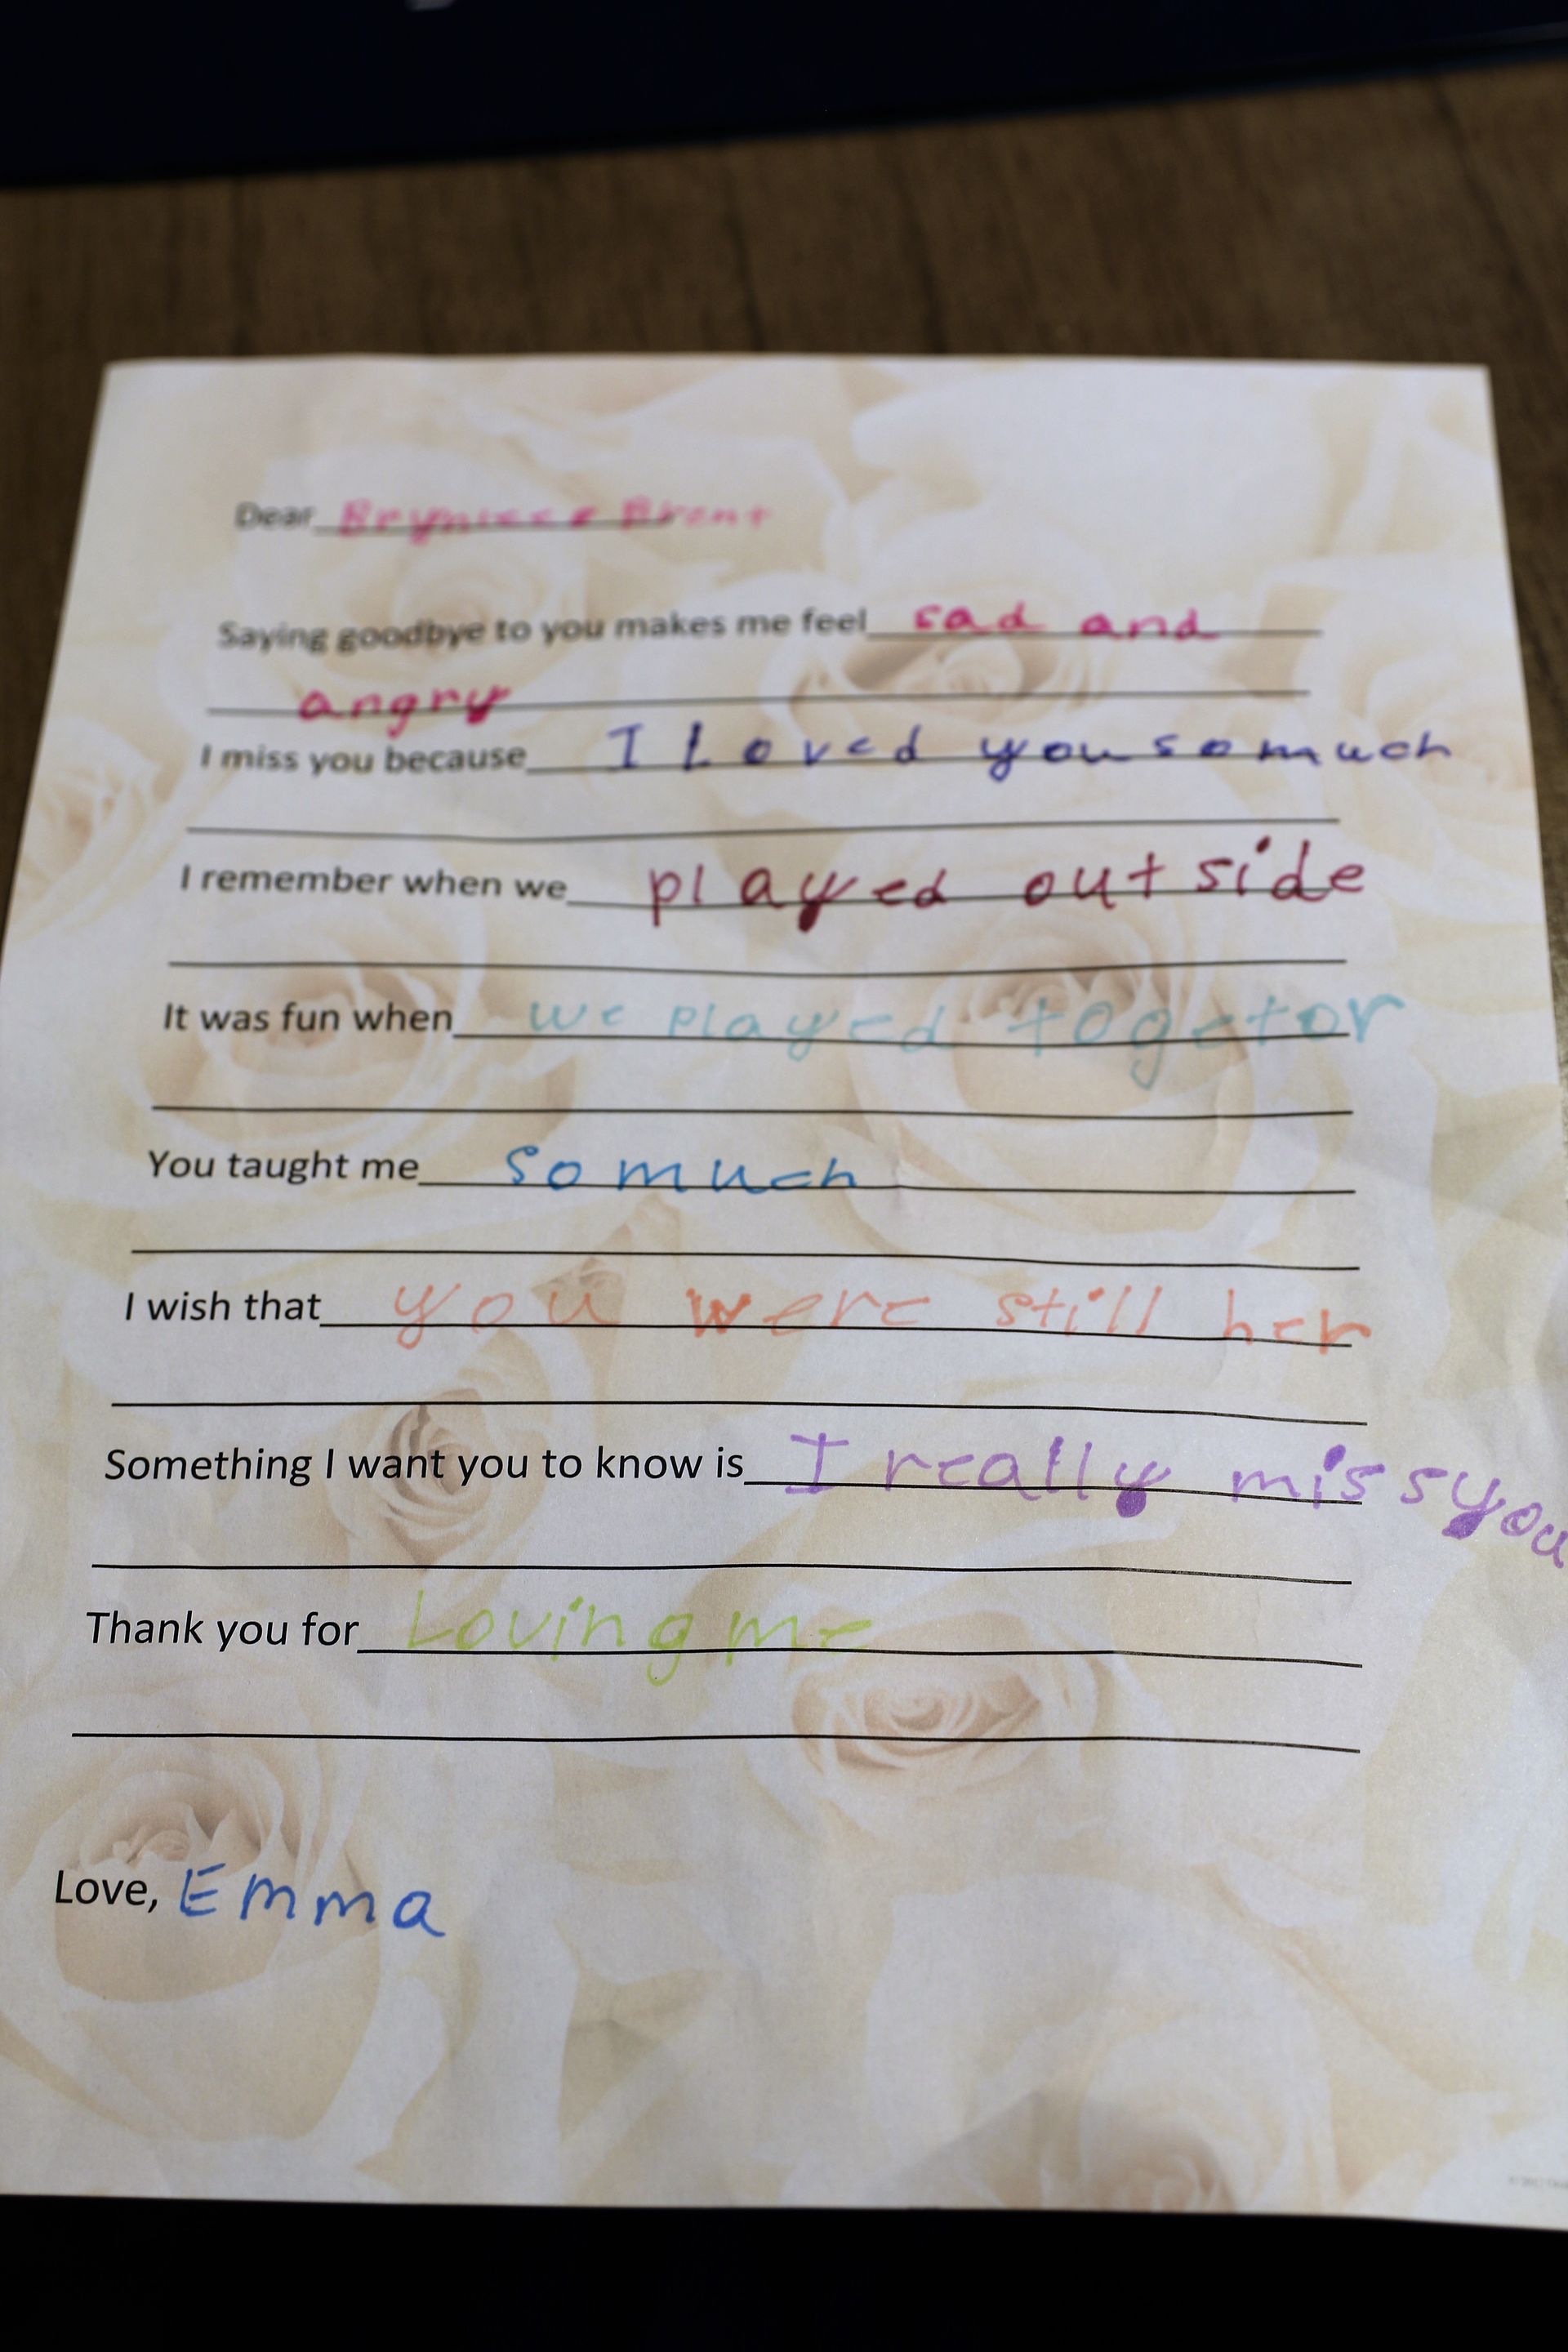 Dear Brent
Saying goodbye to you makes me feel sad and
angry
I miss you because I Loved you so much
I remember when we played out side
It was fun when we played togetor
You taught me so much
I wish that you were still her
Something I want you to know is I really miss you
Thank you for Loving me
Love, Emma